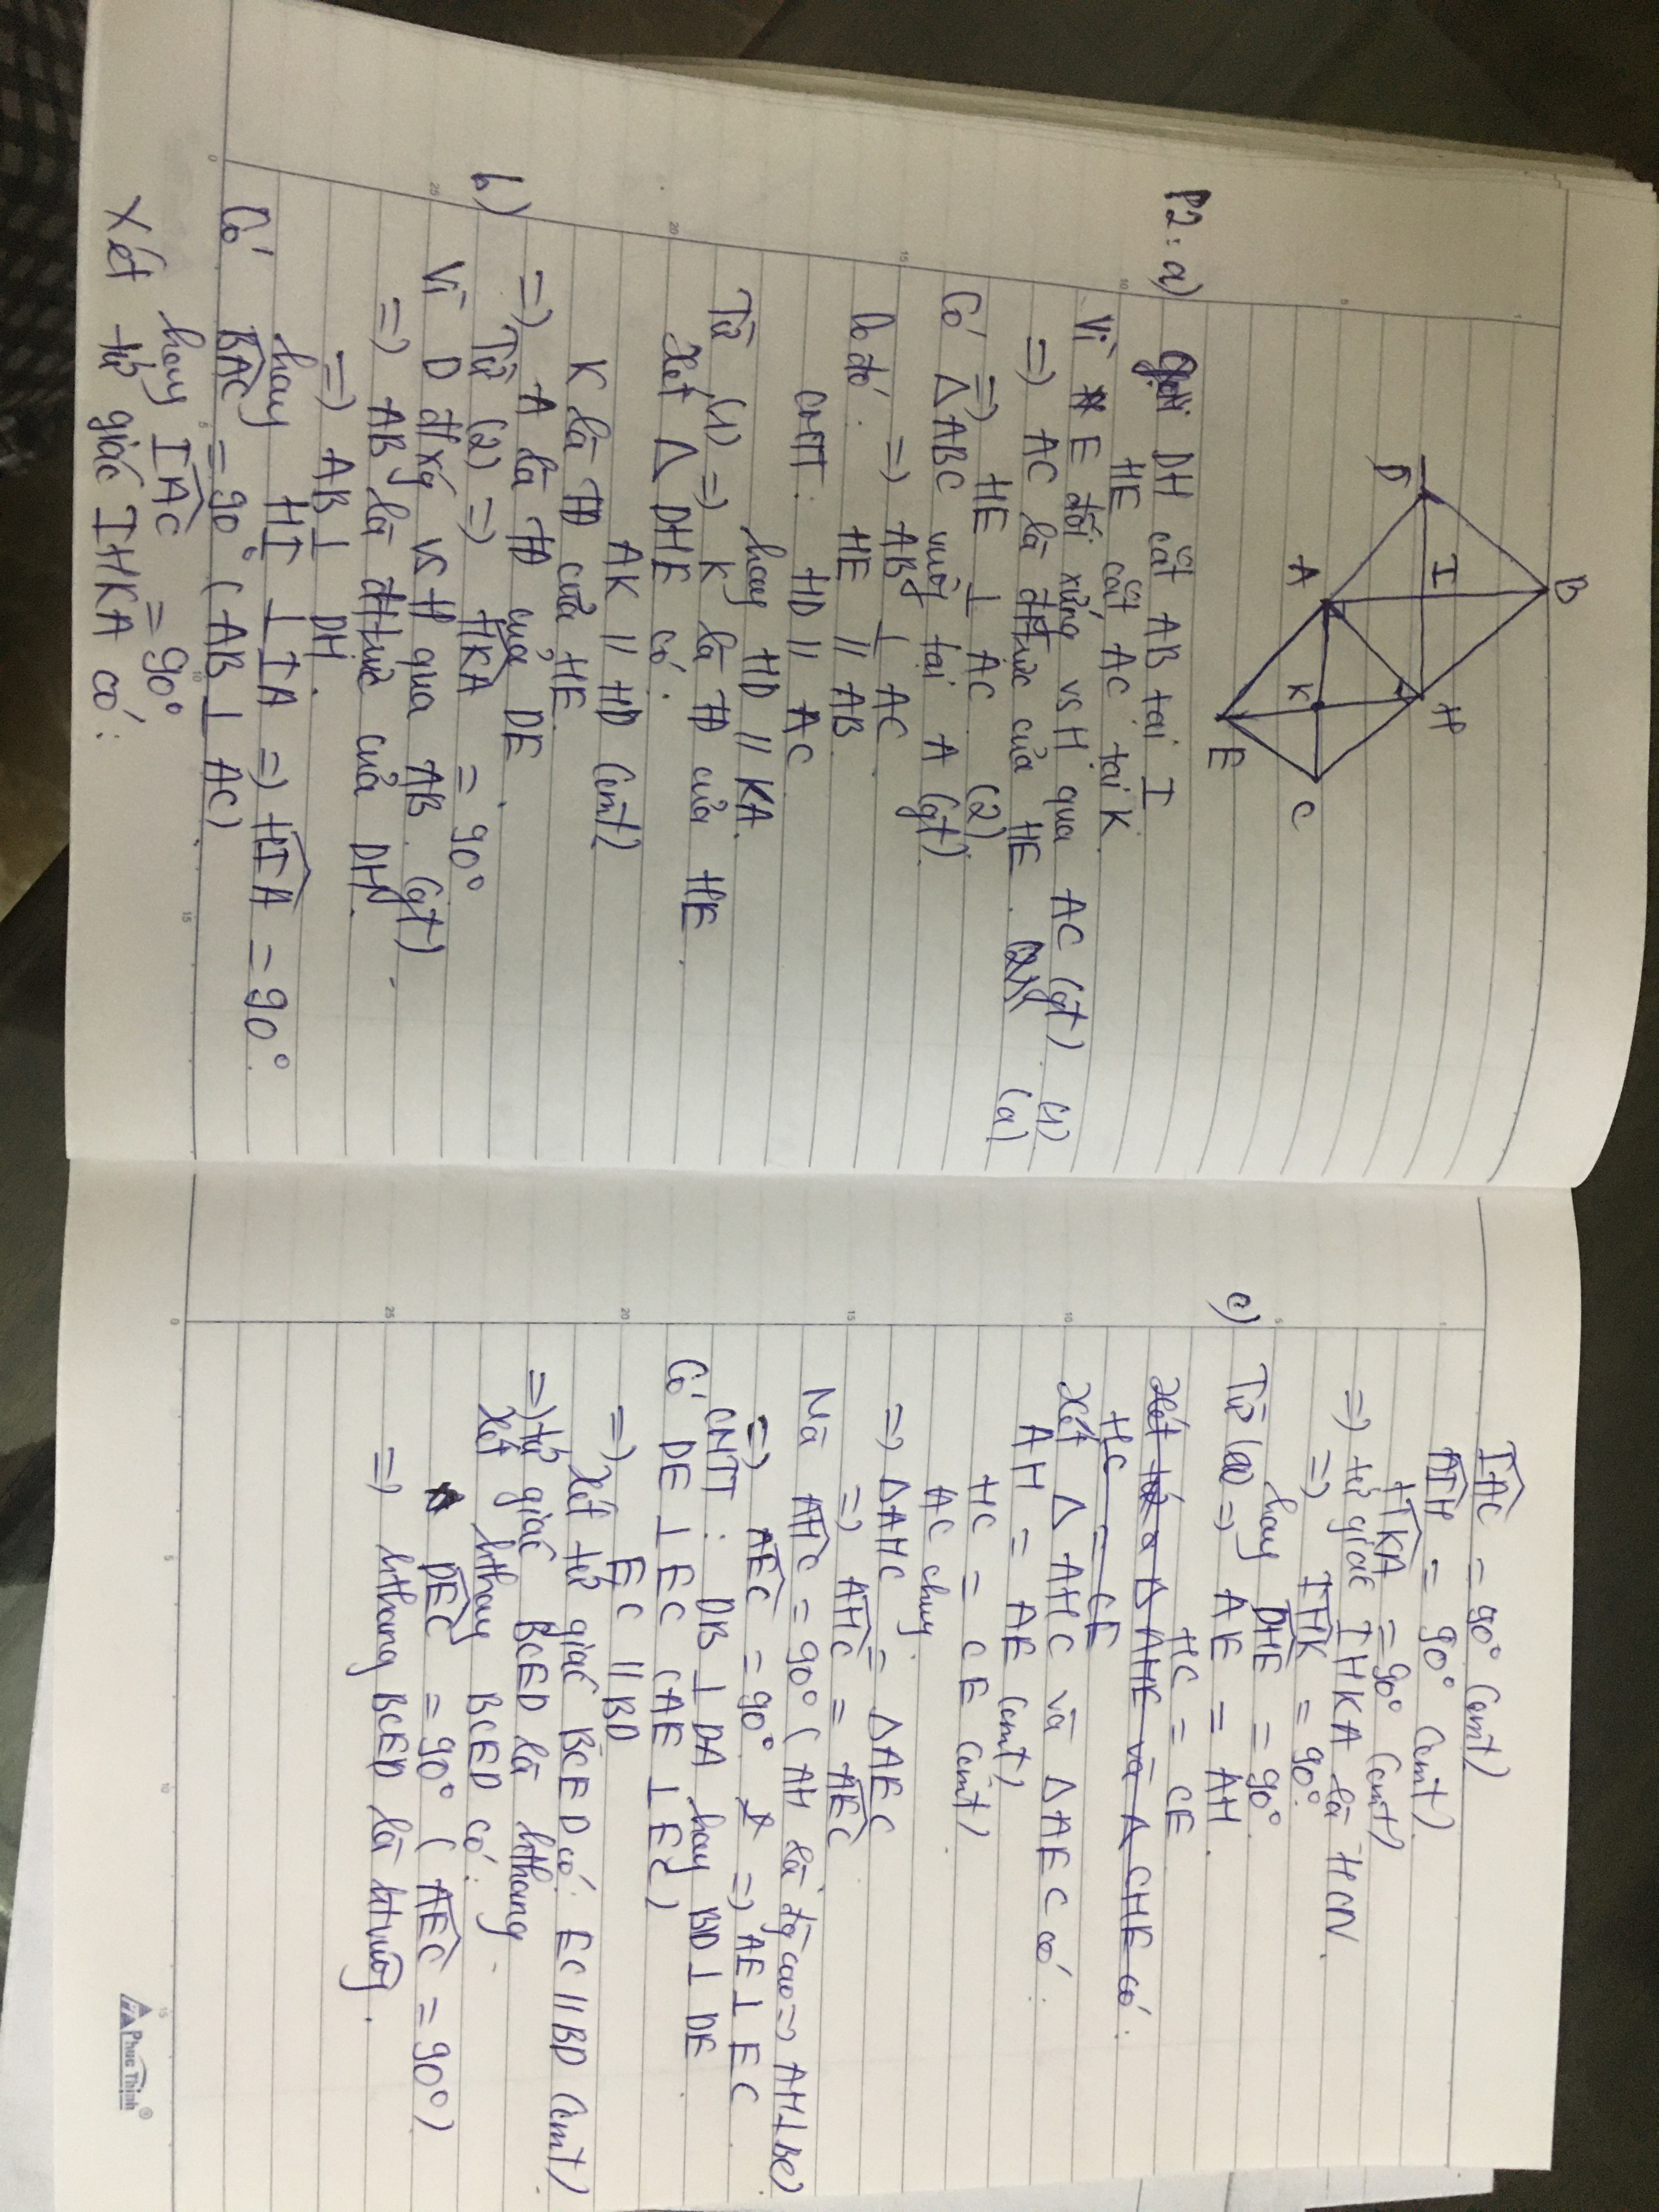 B
D
I
H
A
K
E
C
P2: a) Gọi DH cắt AB tại I
HE cắt AC tại K.
Vì E đối xứng vs H qua AC (gt) (1)
=) AC là đttrực của HE. (a)
=) HE ⊥ AC (2)
Có ΔABC vuông tại A (gt).
=) AB ⊥ AC
Do đó: HE // AB.
CMTT: HD // AC
hay HD // KA.
Từ (1) =) K là TĐ của HE
Xét Δ DHE có:
AK // HD (cmt)
K là TĐ của HE
=) A là TĐ của DE.
b) Từ (2) =) HKA = 90°
Vì D đ/xứg vs H qua AB (gt)
=) AB là đttrực của DH.
=) AB ⊥ DH.
hay HI ⊥ IA =) HIA = 90°
Có BAC = 90° (AB ⊥ AC)
hay IAC = 90°
Xét tứ giác IHKA có:
IAC = 90° (cmt)
AIH = 90° (cmt)
HKA = 90° (cmt)
=) tứ giác IHKA là HCN.
=) IHK = 90°
hay DHE = 90°
c) Từ (a) =) AE = AH
HC = CE
Xét Δ AHE và Δ CHE có:
HC = CE
Xét Δ AHC và ΔAEC có:
AH = AE (cmt)
HC = CE (cmt)
AC chung
=) ΔAHC = ΔAEC
=) AHC = AEC
Mà AHC = 90° (AH là đg cao =) AH⊥BC)
=) AEC = 90° =) AE ⊥ EC
CMTT: DB ⊥ DA hay BD ⊥ DE
Có DE ⊥ EC (AE ⊥ EC)
=) EC // BD
Xét tứ giác BCED có: EC // BD (cmt)
=) tứ giác BCED là hthang
Xét hthang BCED có:
DEC = 90° (AEC = 90°)
=) hthang BCED là htvuông.
Phuc Thinh®
0
5
10
15
20
25